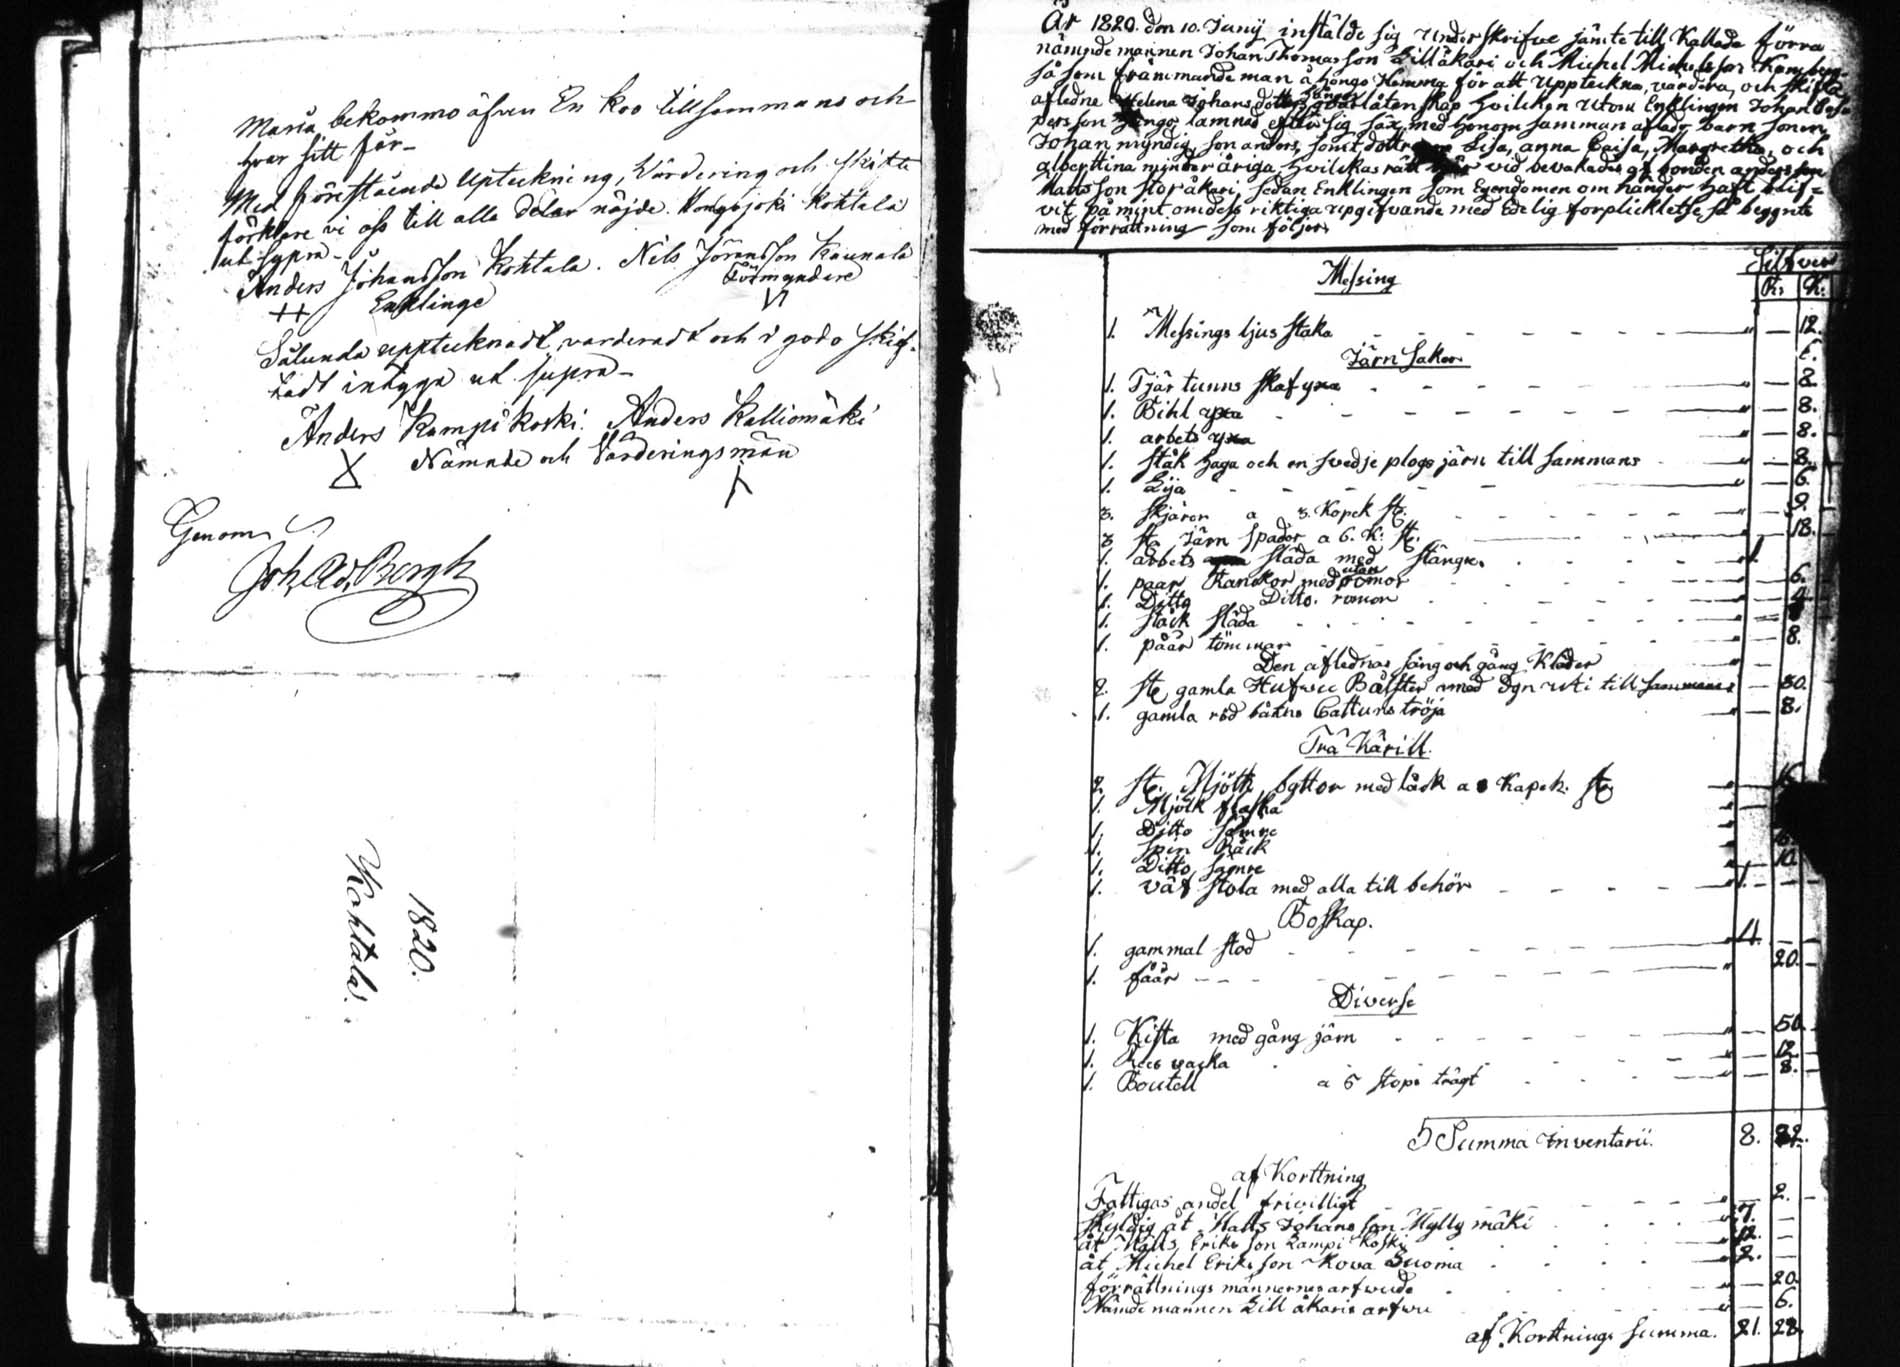 Maria bekommo äfven En koo tillsammans och
hvar sitt får_
Med förestående Upteckning, Värdering och skifte
förklare vi oss till alla delar nöjde. Kongojoki Kohtala
ut supra_
Anders Johansson Kohtala. Nils Jöransson Kaunala
Enklinge Förmyndare
Sålunda upptecknadt, värderadt och i godo skif-
tadt intyga ut supra_
Anders Kampi koski. Anders Kalliomäki
Nämnde och Värderingsmän
Genom
Joh. Ad. Bergh
1820.
Kohtala.
År 1820. den 10. Junij instälde sig Underskrifne jämte till Kallade förra
nämnde mannen Johan Thomasson Lillåkari och Michel Michelsson
så som främmande man å hongo Hemma för att Uppteckna, värdera, och skifta
afledne Helena Johans dotter hongos qvarlåtenskap hvilken utom Enklingen Johan
persson hongo lämnad efter sig sex med honom samman aflade barn sonen
Johan myndig, son anders, samt döttrarne Lisa, anna Caisa, Margretha, och
alberttina minder åriga, hvilckas rätt vid bevakades af bonden anders
Mattsson storåkari, sedan Enklingen som Egendomen om händer haft blif-
vit påmint om dess riktiga upgifvande med Edelig förplicktelse, så begynte
med förrättning som följer,
Silfver
Messing R. K.
1. Messings ljus staka " — 12.
Järn saker.
1. Tjär tunns skaf yxa " — 8.
1. Bihl yxa " — 8.
1. arbets yxa " — 8.
1. ståk haga och en svedje plogs järn till sammans " — 8.
1. Lija " — 6.
3. skjäror a 3. Kopek st. " — 9.
3 st. Järn spador a 6. K: st. " — 18.
1. arbets släda med stänger. " 1.
1. paar Kanckor med utan romor " — 6.
1. Ditto Ditto. romor " — 4
1. ståck släda
1. påar tömmar " — 8.
Den aflednas säng och gång Kläder
2. st. gamla Hufwu Bålster med Dyn uti till sammans " — 30.
1. gamla röd båtns Cattuns tröja " — 8.
Trä Kärill.
2. st. Mjölk byttor med låck a Kapek. st.
1. Mjölk flaska
1. Ditto sämre
1. spin Råck
1. Ditto sämre 10
1. väf stola med alla till behör " 1. —
Boskap.
1. gammal stod " 4. —
1. fåår " 20.
Diverse
1. Kista med gång järn " — 50.
1. vacka " — 12.
1. Boutell a 5 stops trägt — 8.
Summa Inventarii. 8. 82.
af Korttning
Fattigas andel frivilligt " — 2.
skyldig åt Matts Johans son Mylly mäki " 7. —
åt Matts Eriks son Lampi koski " 12. —
åt Michel Eriks son Kova Luoma " 2. —
förrättnings männernes arfwude " — 20.
Nämde mannen Lill åkaris arfwu " — 6.
af Korttnings Summa. 21. 28.